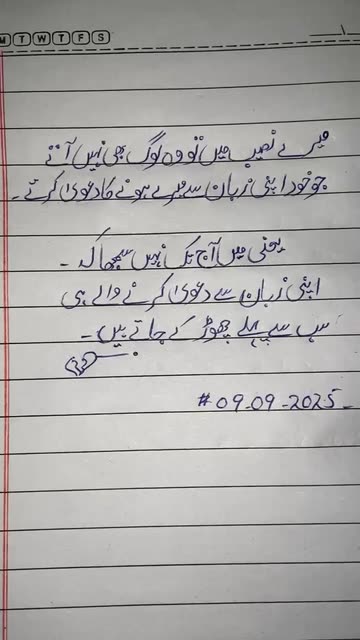 M T W T F S
میرے نصیب میں تو وہ لوگ بھی نہیں آتے
جو خود اپنی زبان سے میرے ہونے کا دعویٰ کرتے۔
یعنی میں آج تک نہیں سمجھا کہ۔
اپنی زبان سے دعویٰ کرنے والے ہی
سب سے پہلے چھوڑ کے جاتے ہیں۔
# 09-09-2025-